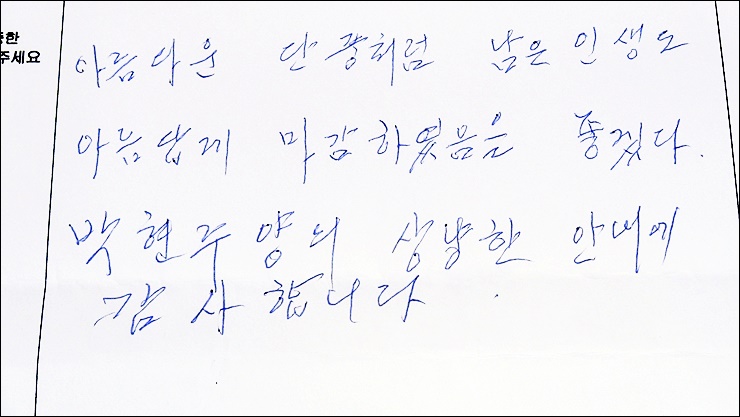 한
주세요
아름다운 단풍처럼 남은 인생도
아름답게 마감하였음은 좋겠다.
박현주양의 상냥한 안내에
감사합니다.